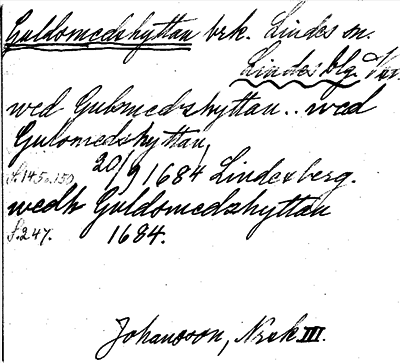 Guldsmedshyttan brk. Lindes sn.
Lindes blg. Väs.
wed Gulsmedzhyttan.. wed
Gulsmedzhyttan,
S. 145 o. 150 20/9 1684 Lindesberg.
wedh Guldsmedzhyttan
S. 247. 1684.
Johansson, Nrsk III.